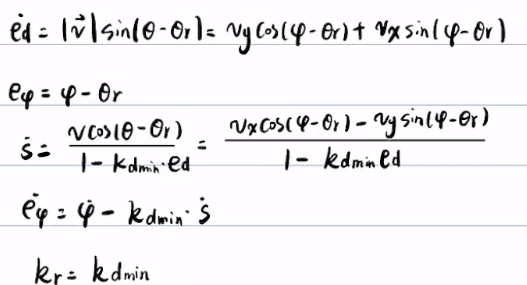 ėd = |v⃗| sin(θ - θr) = vy cos(φ - θr) + vx sin(φ - θr)
eφ = φ - θr
ṡ = v cos(θ - θr) / (1 - kdmin · ed) = (vx cos(φ - θr) - vy sin(φ - θr)) / (1 - kdmin ed)
ėφ = φ̇ - kdmin · ṡ
kr = kdmin